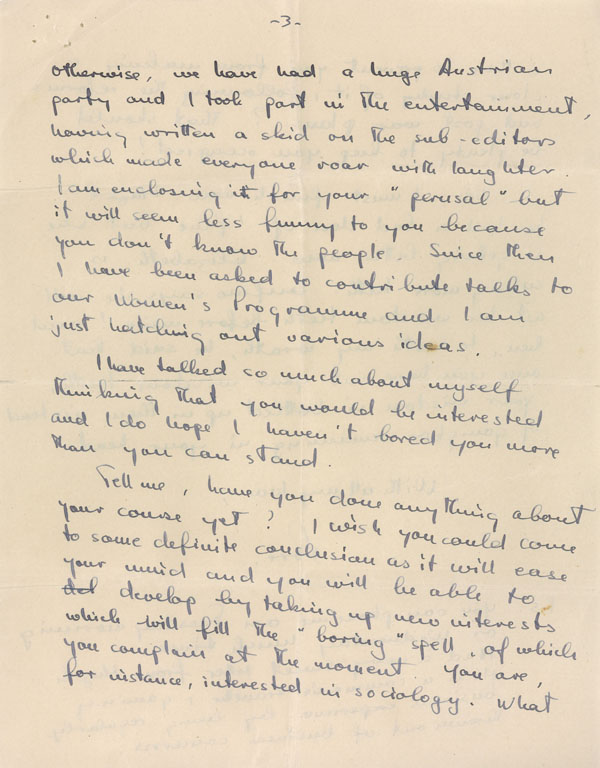 -3-
otherwise, we have had a huge Austrian
party and I took part in the entertainment,
having written a skid on the sub-editors
which made everyone roar with laughter.
I am enclosing it for your "perusal" but
it will seem less funny to you because
you don't know the people. Since then
I have been asked to contribute talks to
our Women's Programme and I am
just hatching out various ideas.
I have talked so much about myself
thinking that you would be interested
and I do hope I haven't bored you more
than you can stand.
Tell me, have you done anything about
your course yet? I wish you could come
to some definite conclusion as it will ease
your mind and you will be able to
develop by taking up new interests
which will fill the "boring" spell, of which
you complain at the moment. You are,
for instance, interested in sociology. What